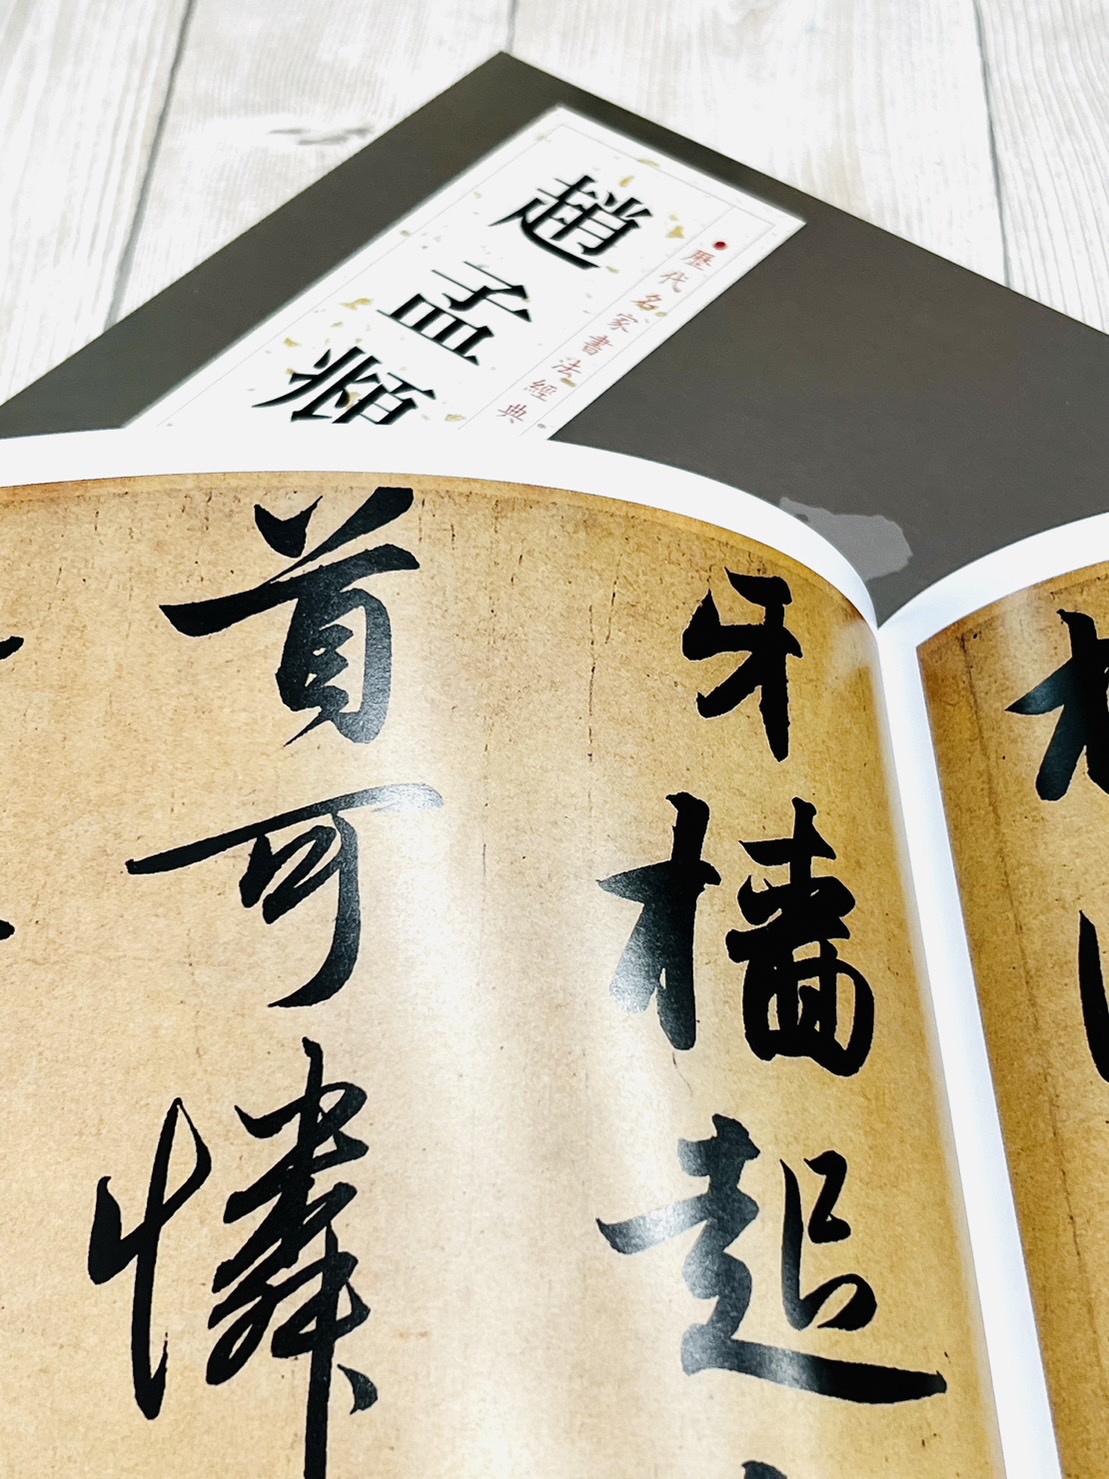 歷代名家書法經典
趙孟頫
牙檣起
首可憐